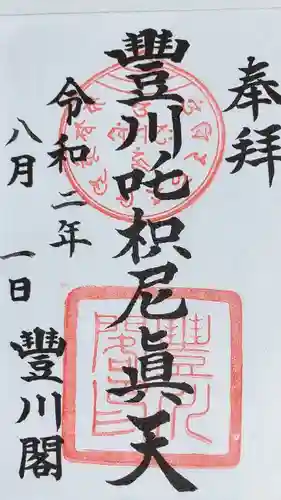 奉拝
豐川吒枳尼眞天
令和二年
八月一日
豐川閣